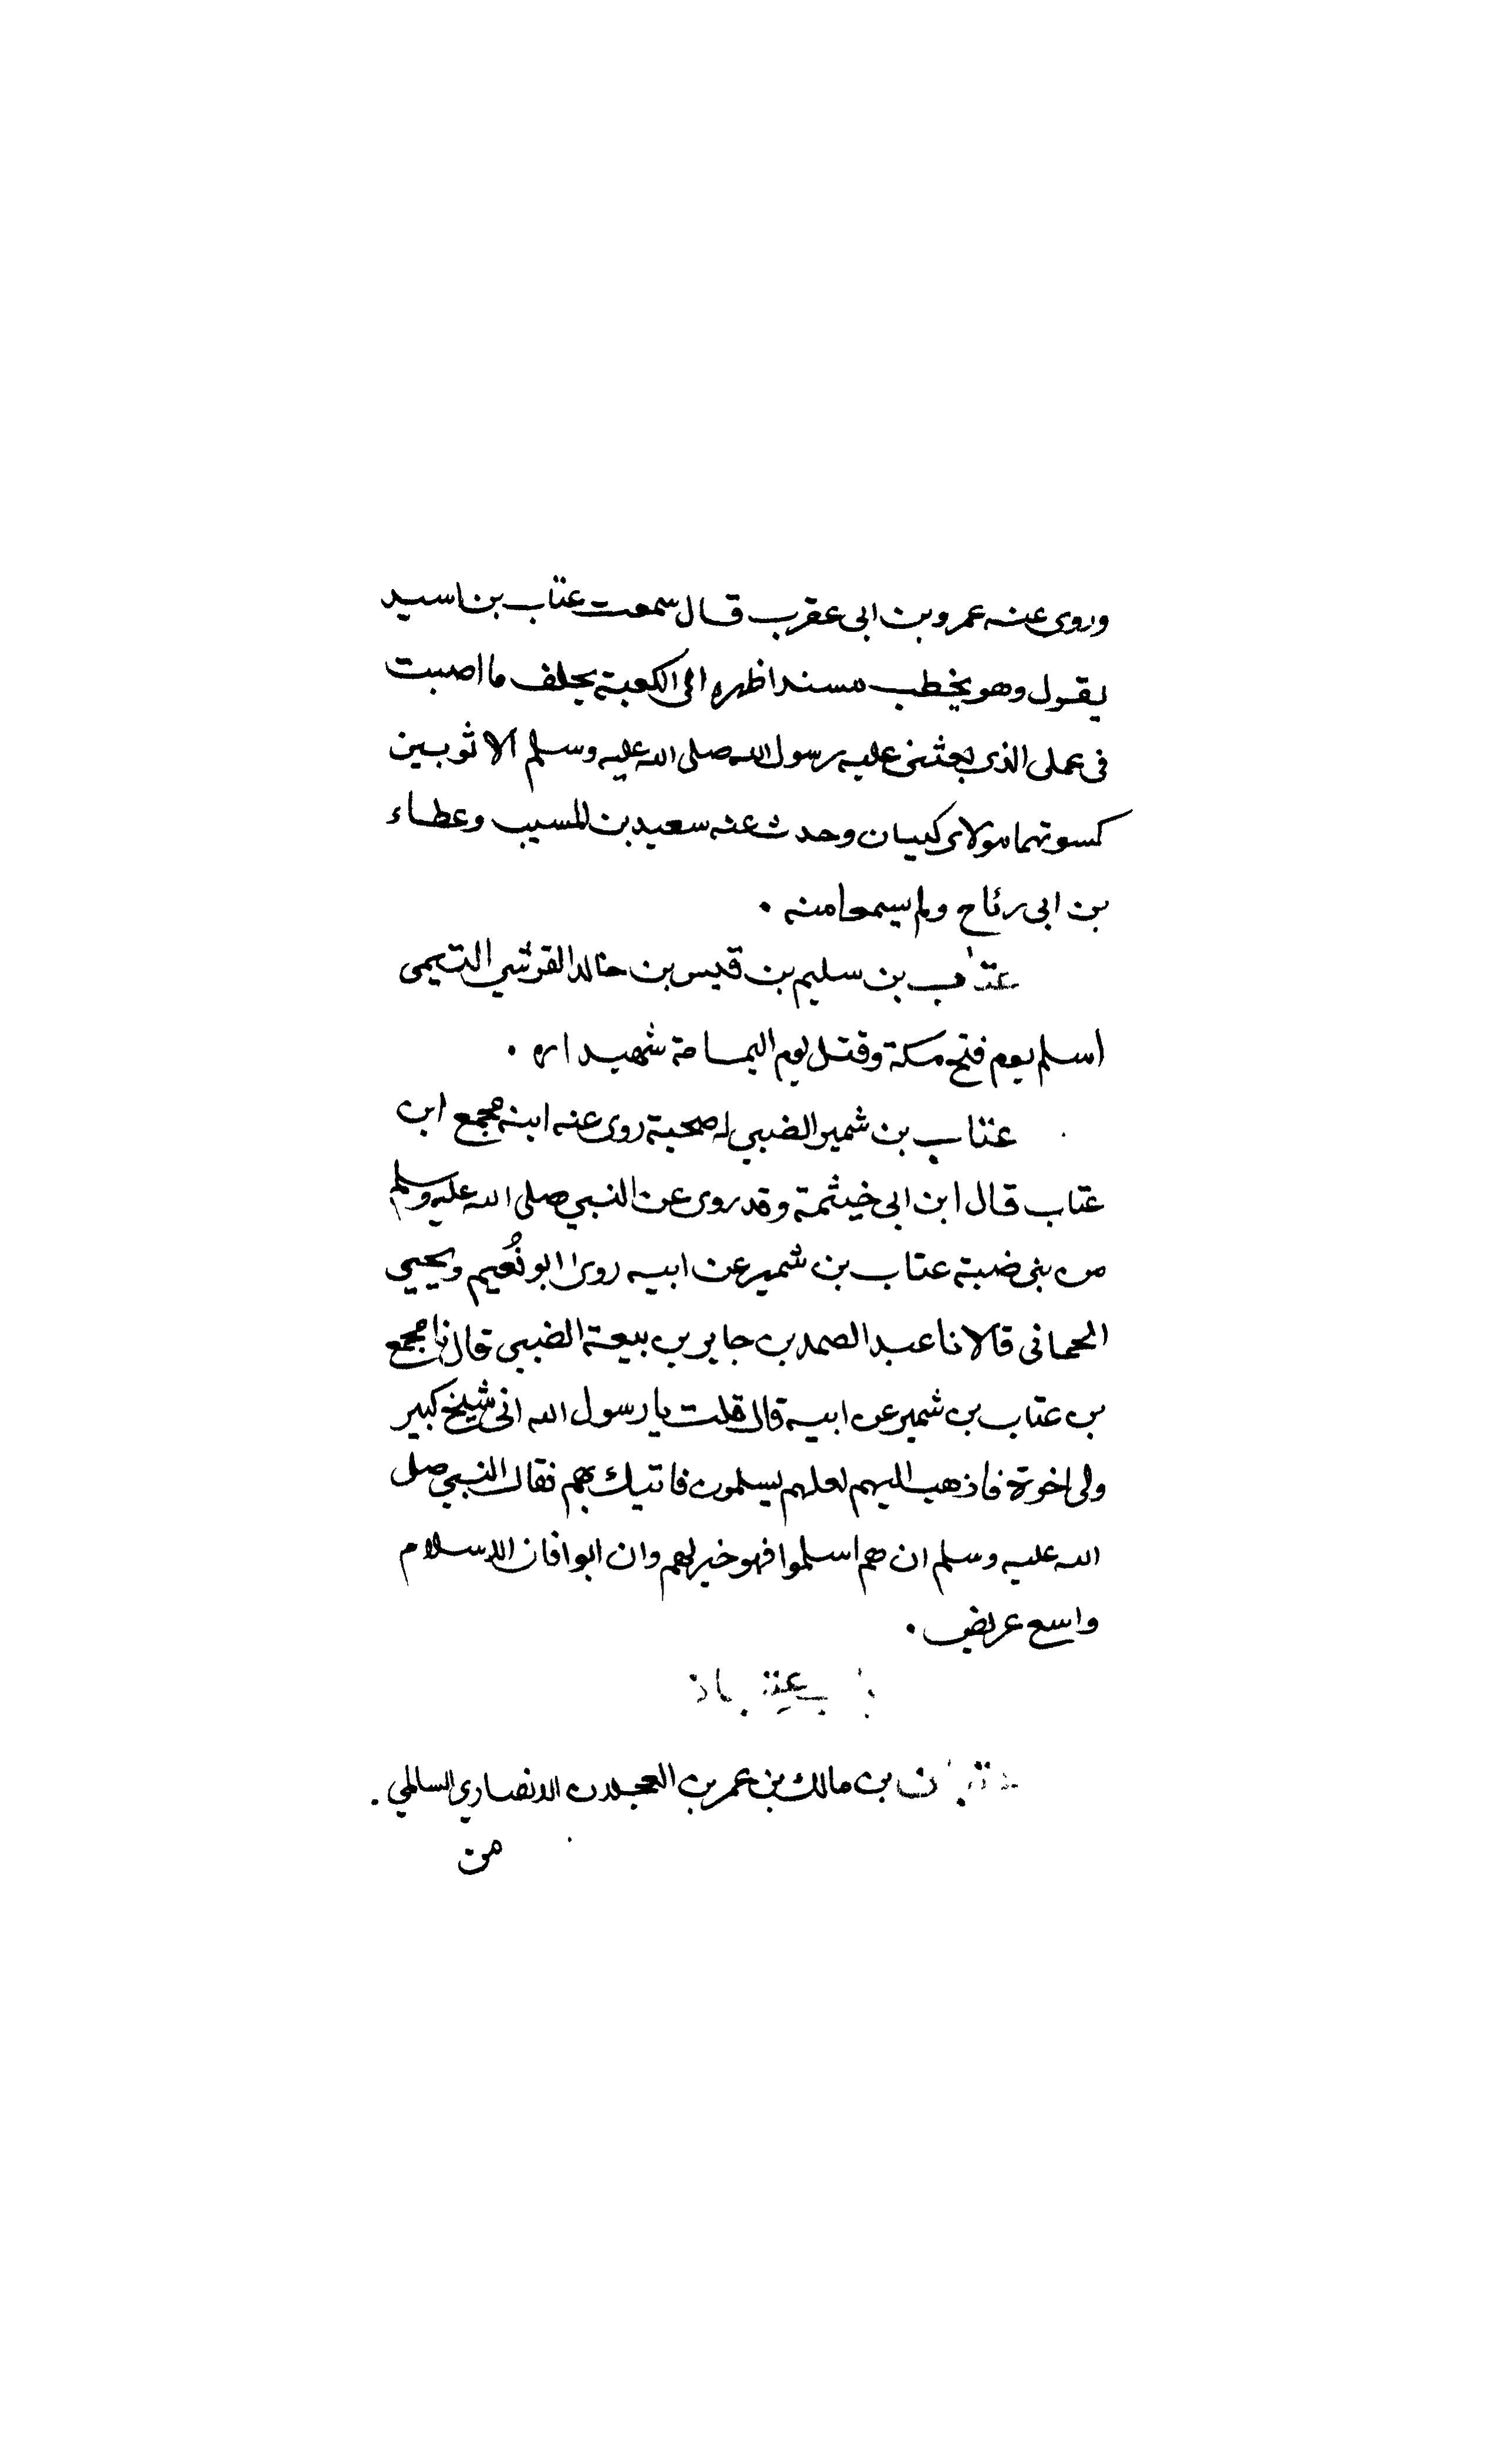 وروى عنه عمرو بن ابى عقرب قال سمعت عتاب بن اسيد
يقول وهو يخطب مسندا ظهره الى الكعبة يحلف ما اصبت
فى عملى الذى بعثنى عليه رسول الله صلى الله عليه وسلم الا ثوبين
كسوتهما مولاى كيسان وحدث عنه سعيد بن المسيب وعطاء
بن ابى رئاح ولم يسمعا منه .
عتاب بن سليم بن قيس بن خالد القرشي التيمى
اسلم يوم فتح مكة وقتل يوم اليمامة شهيدا ره .
عتاب بن شمير الضبي له صحبة روى عنه ابنه مجمع ابن
عتاب قال ابن ابى خيثمة وقد روى عن النبي صلى الله عليه وسلم
من بنى ضبة عتاب بن شمير عن ابيه روى ابو نُعيم ويحيى
الحمانى قالا نا عبد الصمد بن جابر بن بيعة الضبي قال نا مجمع
بن عتاب بن شمير عن ابيه قال قلت يا رسول الله انى شيخ كبير
ولى اخوة فاذهب اليهم لعلهم يسلمون فاتيك بهم فقال النبي صلى
الله عليه وسلم ان هم اسلموا فهو خير لهم وان ابوا فان الاسلام
واسع عريض .
باب عتبان
عتبان بن مالك بن عمر بن العجلان الانصاري السالمي .
من